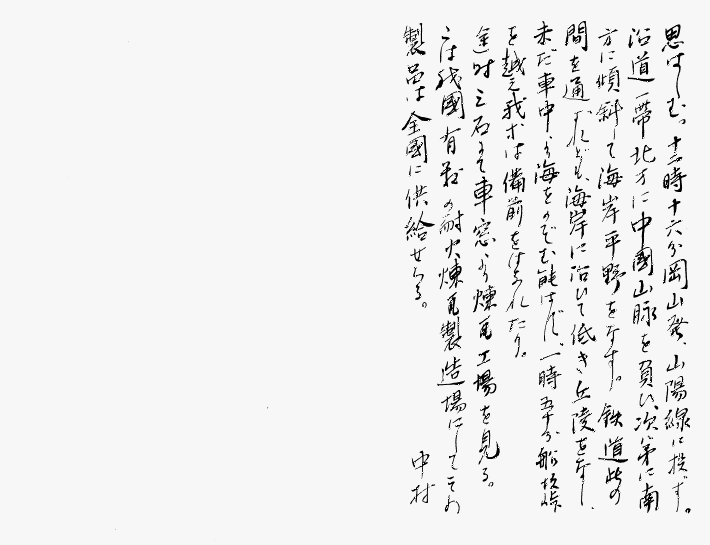 思はしむ。十二時十六分岡山発、山陽線に投ず。
沿道一帯北方に中國山脉を負ひ、次第に南
方に傾斜して海岸平野をなす。鉄道此の
間を通ずれども、海岸に沿いて低き丘陵をなし、
未だ車中より海をのぞむ能はず、一時五十分船坂峠
を越え我才は備前をはなれたり。
進時三石にて車窓より煉瓦工場を見る。
こは我國有数の耐火煉瓦製造場にしてその
製品は全國に供給せらる。
中村